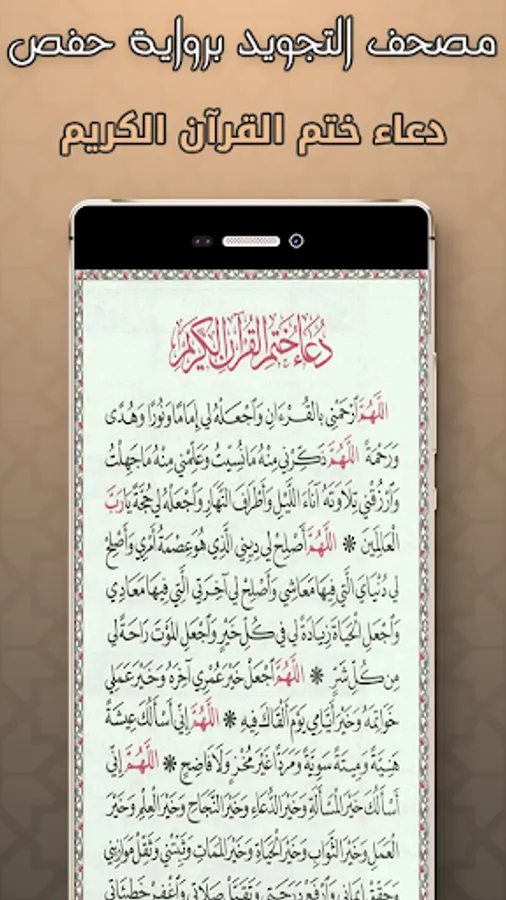 مصحف التجويد برواية حفص
دعاء ختم القرآن الكريم
دُعَاءُ خَتْمِ القُرْآنِ الْكَرِيمِ
اللَّهُمَّ ارْحَمْنِي بالقُرْءَانِ وَاجْعَلهُ لِي إِمَامًا وَنُورًا وَهُدًى
وَرَحْمَةً اللَّهُمَّ ذَكِّرْنِي مِنْهُ مَانُسِّيتُ وَعَلِّمْنِي مِنْهُ مَاجَهِلْتُ
وَارْزُقْنِي تِلَاوَتَهُ آنَاءَ اللَّيْلِ وَأَطْرَافَ النَّهَارِ وَاجْعَلْهُ لِي حُجَّةً يَارَبَّ
الْعَالَمِينَ * اللَّهُمَّ أَصْلِحْ لِي دِينِي الَّذِي هُوَ عِصْمَةُ أَمْرِي وَأَصْلِحْ
لِي دُنْيَايَ الَّتِي فِيهَا مَعَاشِي وَأَصْلِحْ لِي آخِرَتِي الَّتِي فِيهَا مَعَادِي
وَاجْعَلِ الْحَيَاةَ زِيَادَةً لِي فِي كُلِّ خَيْرٍ وَاجْعَلِ الْمَوْتَ رَاحَةً لِي
مِن كُلِّ شَرٍّ * اللَّهُمَّ اجْعَلْ خَيْرَ عُمْرِي آخِرَهُ وَخَيْرَ عَمَلِي
خَوَاتِمَهُ وَخَيْرَ أَيَّامِي يَوْمَ أَلْقَاكَ فِيهِ * اللَّهُمَّ إِنِّي أَسْأَلُكَ عِيشَةً
هَنِيَّةً وَمِيتَةً سَوِيَّةً وَمَرَدًّا غَيْرَ مُخْزٍ وَلَا فَاضِحٍ * اللَّهُمَّ إِنِّي
أَسْأَلُكَ خَيْرَ الْمَسْأَلَةِ وَخَيْرَ الدُّعَاءِ وَخَيْرَ النَّجَاحِ وَخَيْرَ الْعِلْمِ وَخَيْرَ
الْعَمَلِ وَخَيْرَ الثَّوَابِ وَخَيْرَ الْحَيَاةِ وَخَيْرَ الْمَمَاتِ وَثَبِّتْنِي وَثَقِّلْ مَوَازِينِي
وَحَقِّقْ إِيمَانِي وَارْفَعْ دَرَجَتِي وَتَقَبَّلْ صَلَاتِي وَاغْفِرْ خَطِيئَاتِي